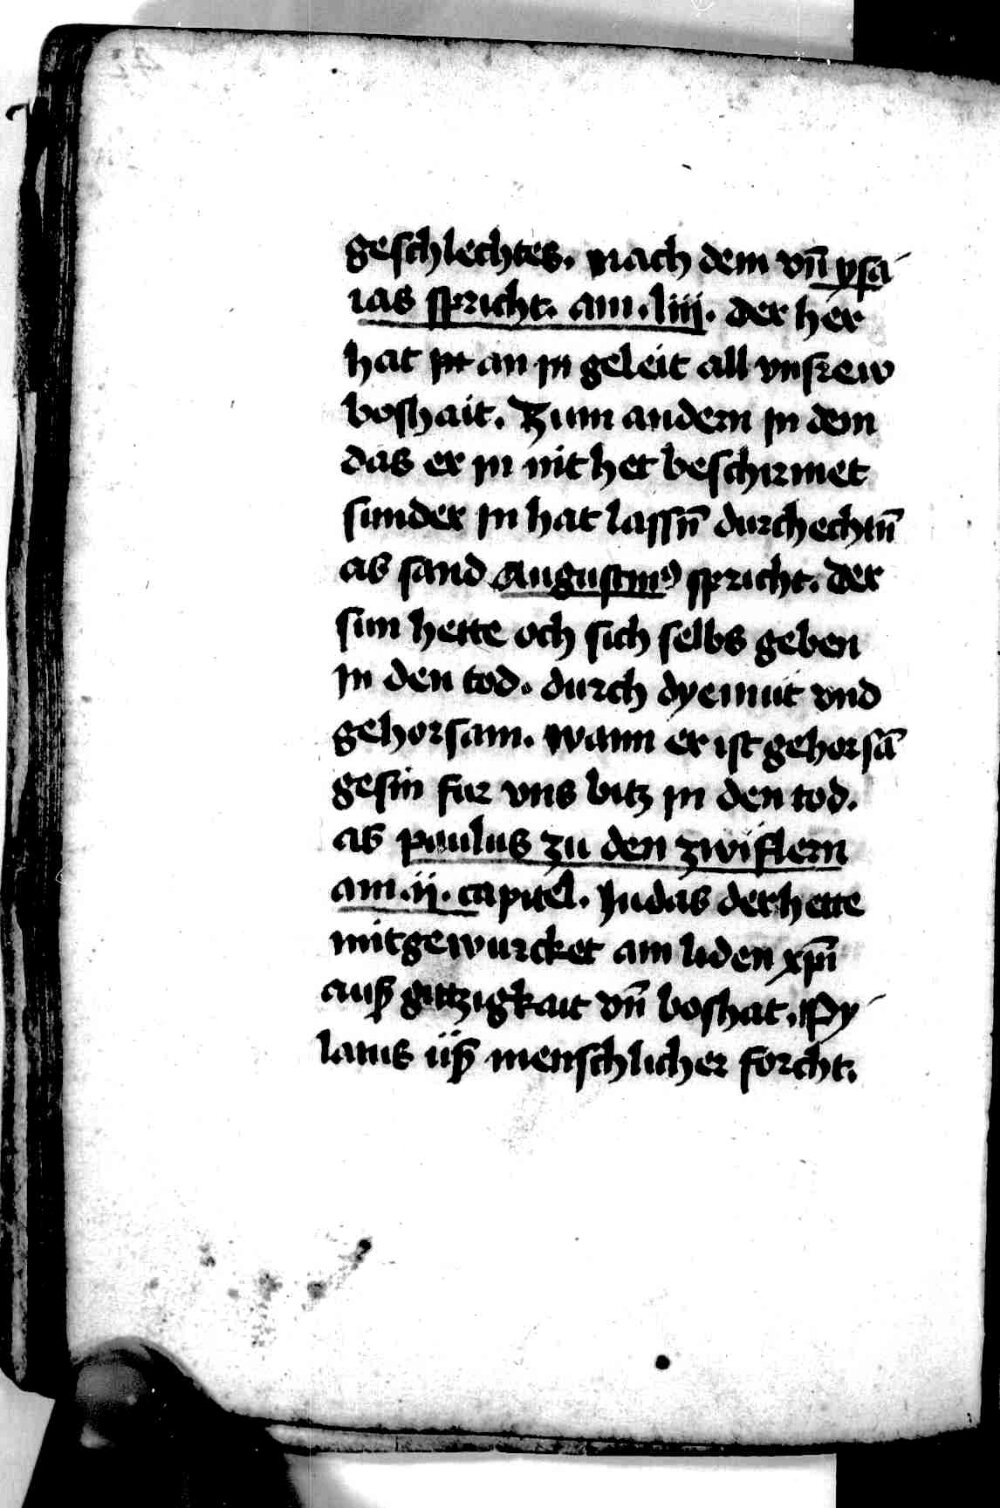 geschlechtes. nach dem vn̄ ysa-
ias spricht. am. liij. der her
hat in an in geleit all vnsrew
boshait. Zum andern in dem
das er in nit het beschirmet
sunder in hat lassn̄ durchechtn̄
as sand Augustin⁹ spricht. der
sun hette och sich selbs geben
in den tod. durch dyemut vnd
gehorsam. wann er ist gehorsā
gesin fur vns bitz in den tod.
as paulus zu den zwiflern
am. ij. capitel. Judas der hette
mitgewurcket am liden xp̄i
auß gittzigkait vn̄ boshat. Py-
latus uß menschlicher forcht.